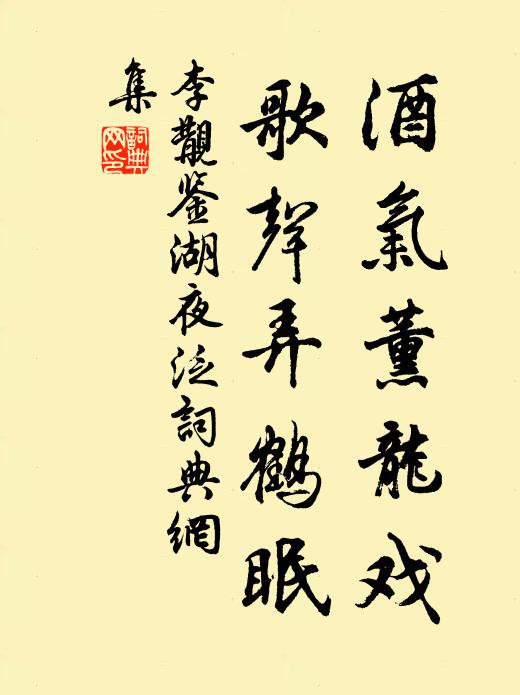 酒氣薰龍戏
歌聲弄鶴眠
李觀鉴湖夜泛詞典網
集
詞典网印